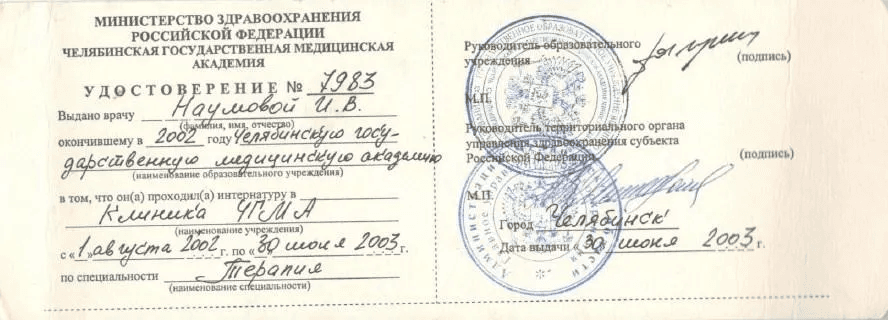 МИНИСТЕРСТВО ЗДРАВООХРАНЕНИЯ
РОССИЙСКОЙ ФЕДЕРАЦИИ
ЧЕЛЯБИНСКАЯ ГОСУДАРСТВЕННАЯ МЕДИЦИНСКАЯ
АКАДЕМИЯ
УДОСТОВЕРЕНИЕ № 7983
Выдано врачу Наумовой И.В.
(фамилия, имя, отчество)
окончившему в 2002 году Челябинскую госу-
дарственную медицинскую академию
(наименование образовательного учреждения)
в том, что он(а) проходил(а) интернатуру в
Клиника ЧГМА
(наименование учреждения)
с «1» августа 2002 г. по «30» июня 2003 г.
по специальности Терапия
(наименование специальности)
Руководитель образовательного
учреждения
(подпись)
М.П.
Руководитель территориального органа
управления здравоохранения субъекта
Российской Федерации
(подпись)
М.П.
Город Челябинск
Дата выдачи «30» июня 2003 г.